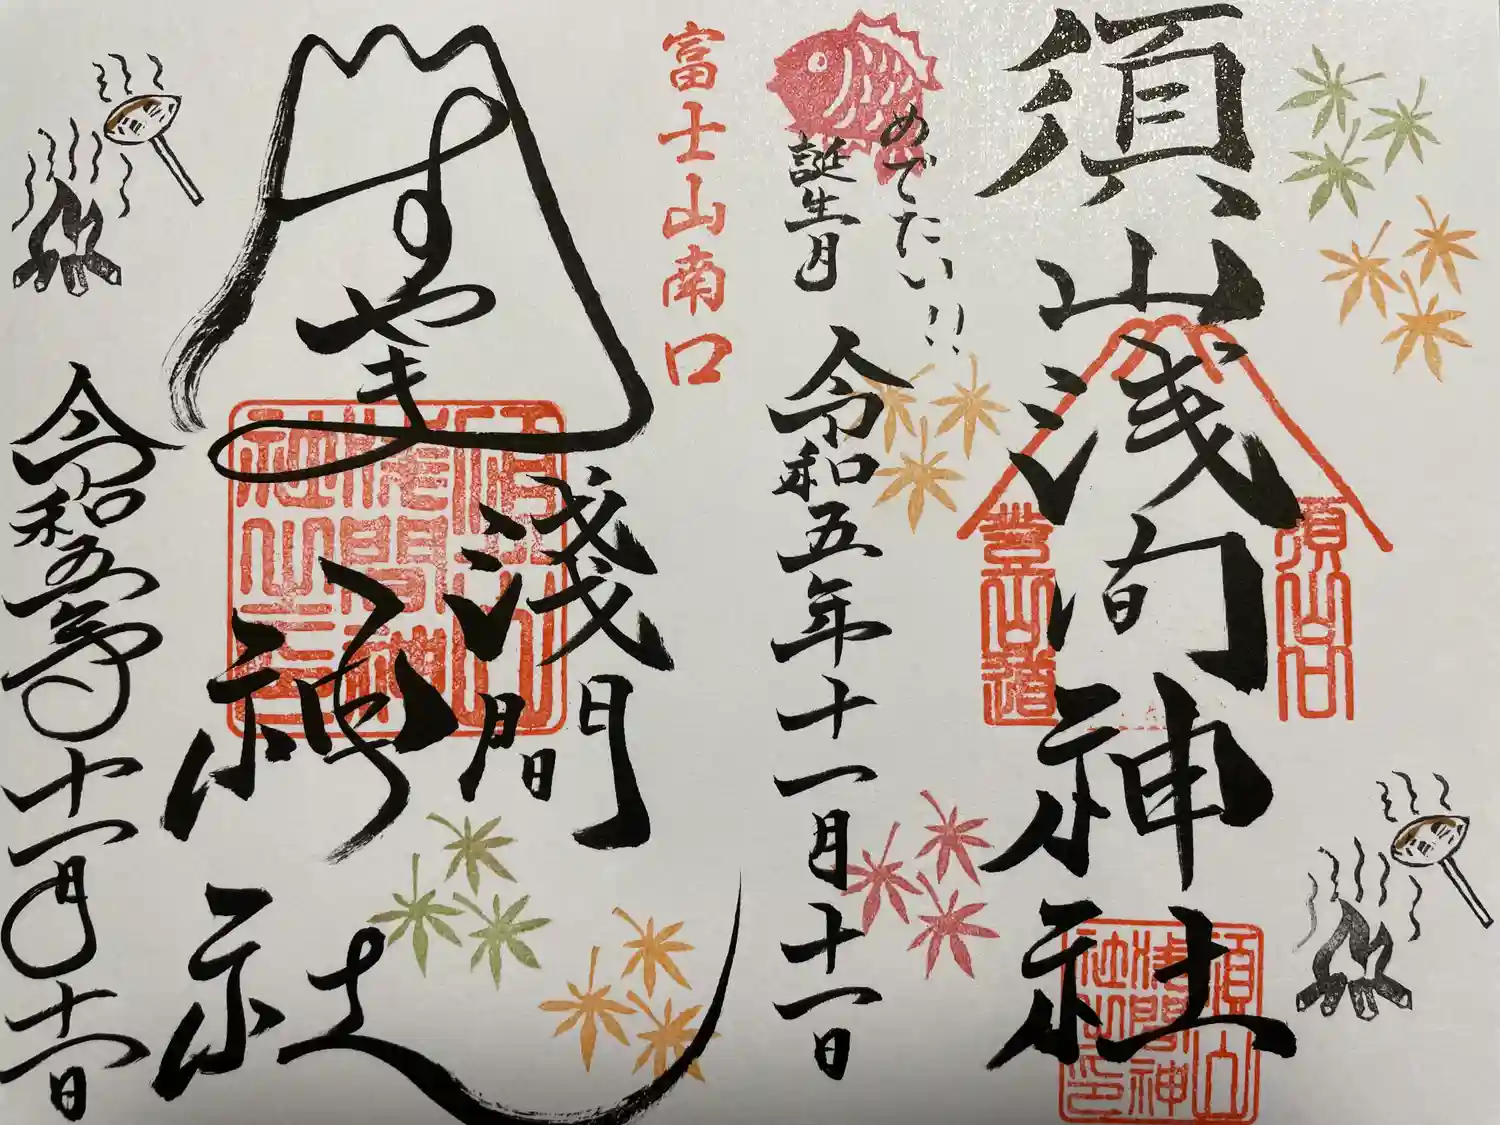 須山浅間神社
須山口
登山道
須山浅間神社之印
めでたい!!
誕生月
令和五年十一月十一日
富士山南口
すやま
淺間
神社
須山浅間神社之印
令和五年十一月十一日